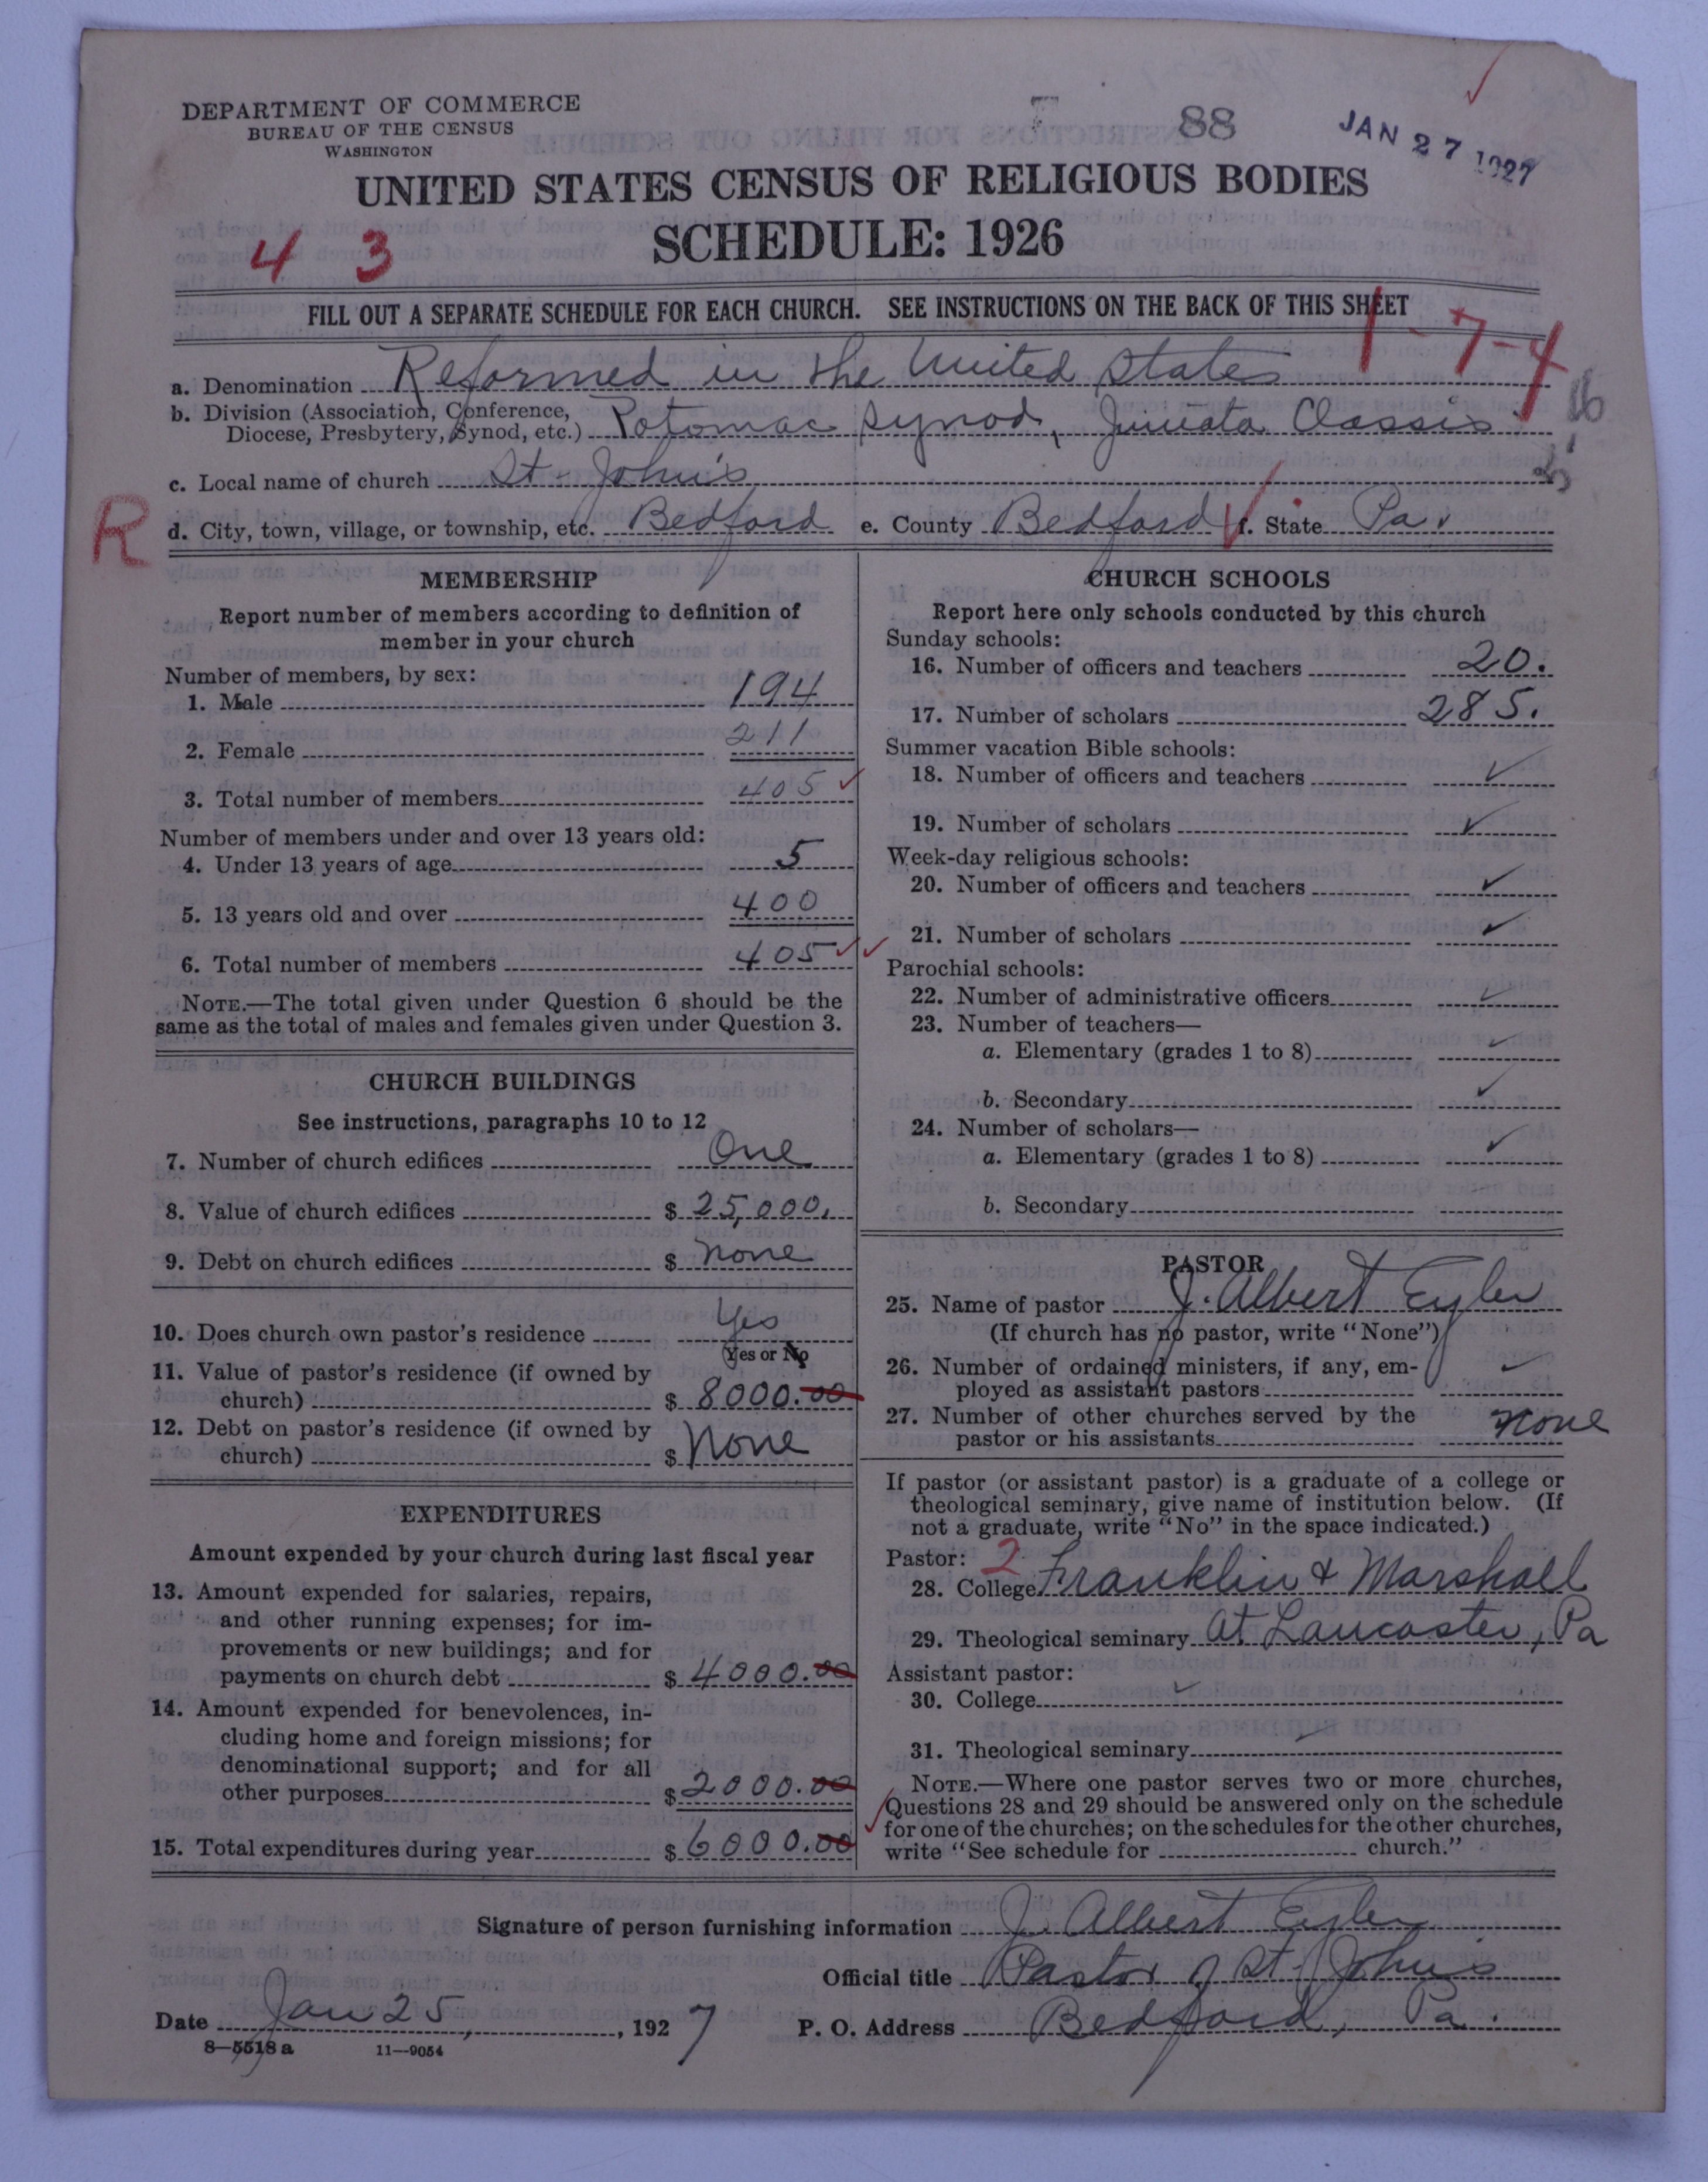 DEPARTMENT OF COMMERCE
BUREAU OF THE CENSUS
WASHINGTON
88
JAN 27 1927
UNITED STATES CENSUS OF RELIGIOUS BODIES
SCHEDULE: 1926
4 3
FILL OUT A SEPARATE SCHEDULE FOR EACH CHURCH. SEE INSTRUCTIONS ON THE BACK OF THIS SHEET
1-7-4
a. Denomination Reformed in the United States
b. Division (Association, Conference,
Diocese, Presbytery, Synod, etc.) Potomac Synod, Juniata Classis
16
c. Local name of church St-John's
R
d. City, town, village, or township, etc. Bedford e. County Bedford f. State Pa.
MEMBERSHIP
Report number of members according to definition of
member in your church
Number of members, by sex:
1. Male 194
2. Female 211
3. Total number of members 405 ✓
Number of members under and over 13 years old:
4. Under 13 years of age 5
5. 13 years old and over 400
6. Total number of members 405 ✓✓
NOTE.—The total given under Question 6 should be the
same as the total of males and females given under Question 3.
CHURCH BUILDINGS
See instructions, paragraphs 10 to 12
7. Number of church edifices One
8. Value of church edifices $ 25,000.
9. Debt on church edifices $ none
10. Does church own pastor's residence Yes
Yes or No
11. Value of pastor's residence (if owned by
church) $ 8000.00
12. Debt on pastor's residence (if owned by
church) $ None
EXPENDITURES
Amount expended by your church during last fiscal year
13. Amount expended for salaries, repairs,
and other running expenses; for im-
provements or new buildings; and for
payments on church debt $ 4000.00
14. Amount expended for benevolences, in-
cluding home and foreign missions; for
denominational support; and for all
other purposes $ 2000.00
15. Total expenditures during year $ 6000.00
CHURCH SCHOOLS
Report here only schools conducted by this church
Sunday schools:
16. Number of officers and teachers 20.
17. Number of scholars 285.
Summer vacation Bible schools:
18. Number of officers and teachers ✓
19. Number of scholars ✓
Week-day religious schools:
20. Number of officers and teachers ✓
21. Number of scholars ✓
Parochial schools:
22. Number of administrative officers ✓
23. Number of teachers—
a. Elementary (grades 1 to 8) ✓
b. Secondary ✓
24. Number of scholars—
a. Elementary (grades 1 to 8) ✓
b. Secondary
PASTOR
25. Name of pastor J. Albert Eyler
(If church has no pastor, write "None")
26. Number of ordained ministers, if any, em-
ployed as assistant pastors ✓
27. Number of other churches served by the
pastor or his assistants none
If pastor (or assistant pastor) is a graduate of a college or
theological seminary, give name of institution below. (If
not a graduate, write "No" in the space indicated.)
Pastor: 2
28. College Franklin & Marshall
29. Theological seminary at Lancaster, Pa
Assistant pastor:
30. College ✓
31. Theological seminary
NOTE.—Where one pastor serves two or more churches,
Questions 28 and 29 should be answered only on the schedule
for one of the churches; on the schedules for the other churches,
write "See schedule for church."
Signature of person furnishing information J. Albert Eyler
Official title Pastor of St-John's
Date Jan 25, 1927 P. O. Address Bedford, Pa.
8—5518a 11—9054